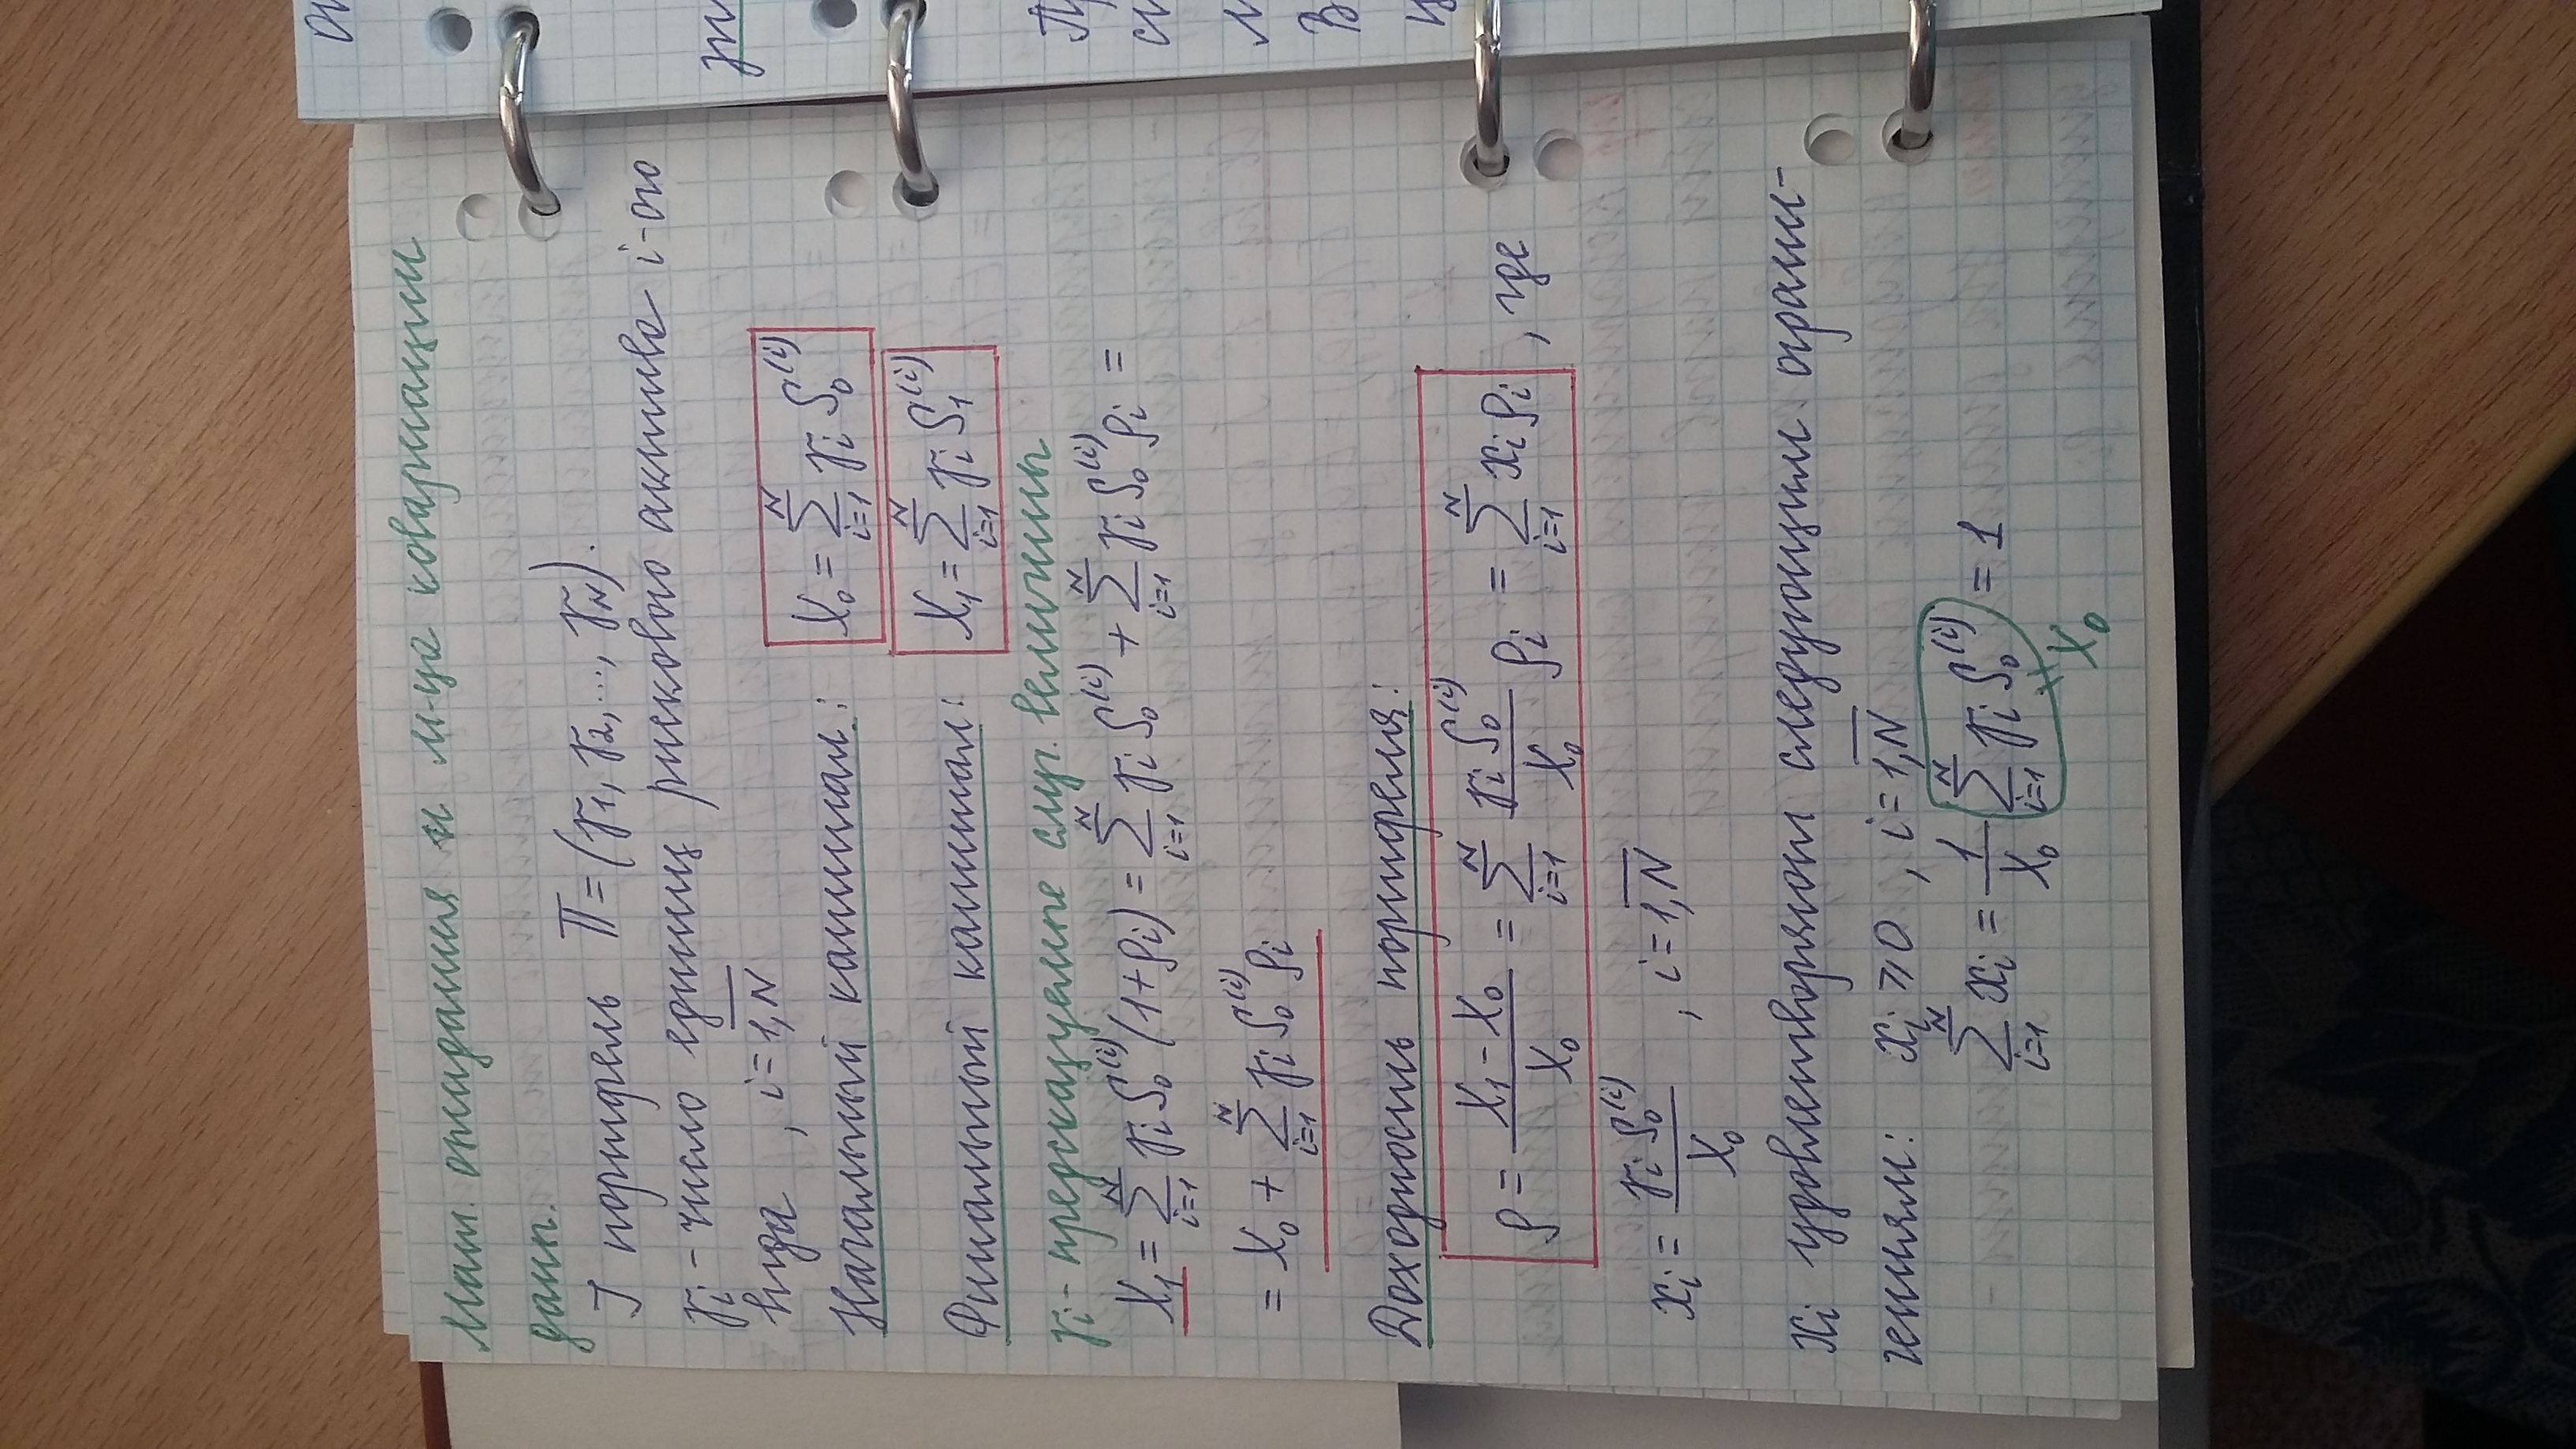 Мат. ожидания и м-ца ковариации
даны.
] портфель П=(γ₁, γ₂, ..., γ_N).
γᵢ - число единиц рискового актива i-ого
вида , i=1,N
Начальный капитал: X₀ = ∑_{i=1}^{N} γᵢ S₀^{(i)}
Финальный капитал: X₁ = ∑_{i=1}^{N} γᵢ S₁^{(i)}
γᵢ - предсказуемые случ. величины
X₁ = ∑_{i=1}^{N} γᵢ S₀^{(i)} (1+ρᵢ) = ∑_{i=1}^{N} γᵢ S₀^{(i)} + ∑_{i=1}^{N} γᵢ S₀^{(i)} ρᵢ =
= X₀ + ∑_{i=1}^{N} γᵢ S₀^{(i)} ρᵢ
Доходность портфеля:
ρ = (X₁ - X₀)/X₀ = ∑_{i=1}^{N} (γᵢ S₀^{(i)}/X₀) ρᵢ = ∑_{i=1}^{N} xᵢ ρᵢ , где
xᵢ = γᵢ S₀^{(i)}/X₀ , i=1,N
xᵢ удовлетворяют следующим ограни-
чениям: xᵢ ⩾ 0 , i=1,N
∑_{i=1}^{N} xᵢ = 1/X₀ ∑_{i=1}^{N} γᵢ S₀^{(i)} = 1
X₀